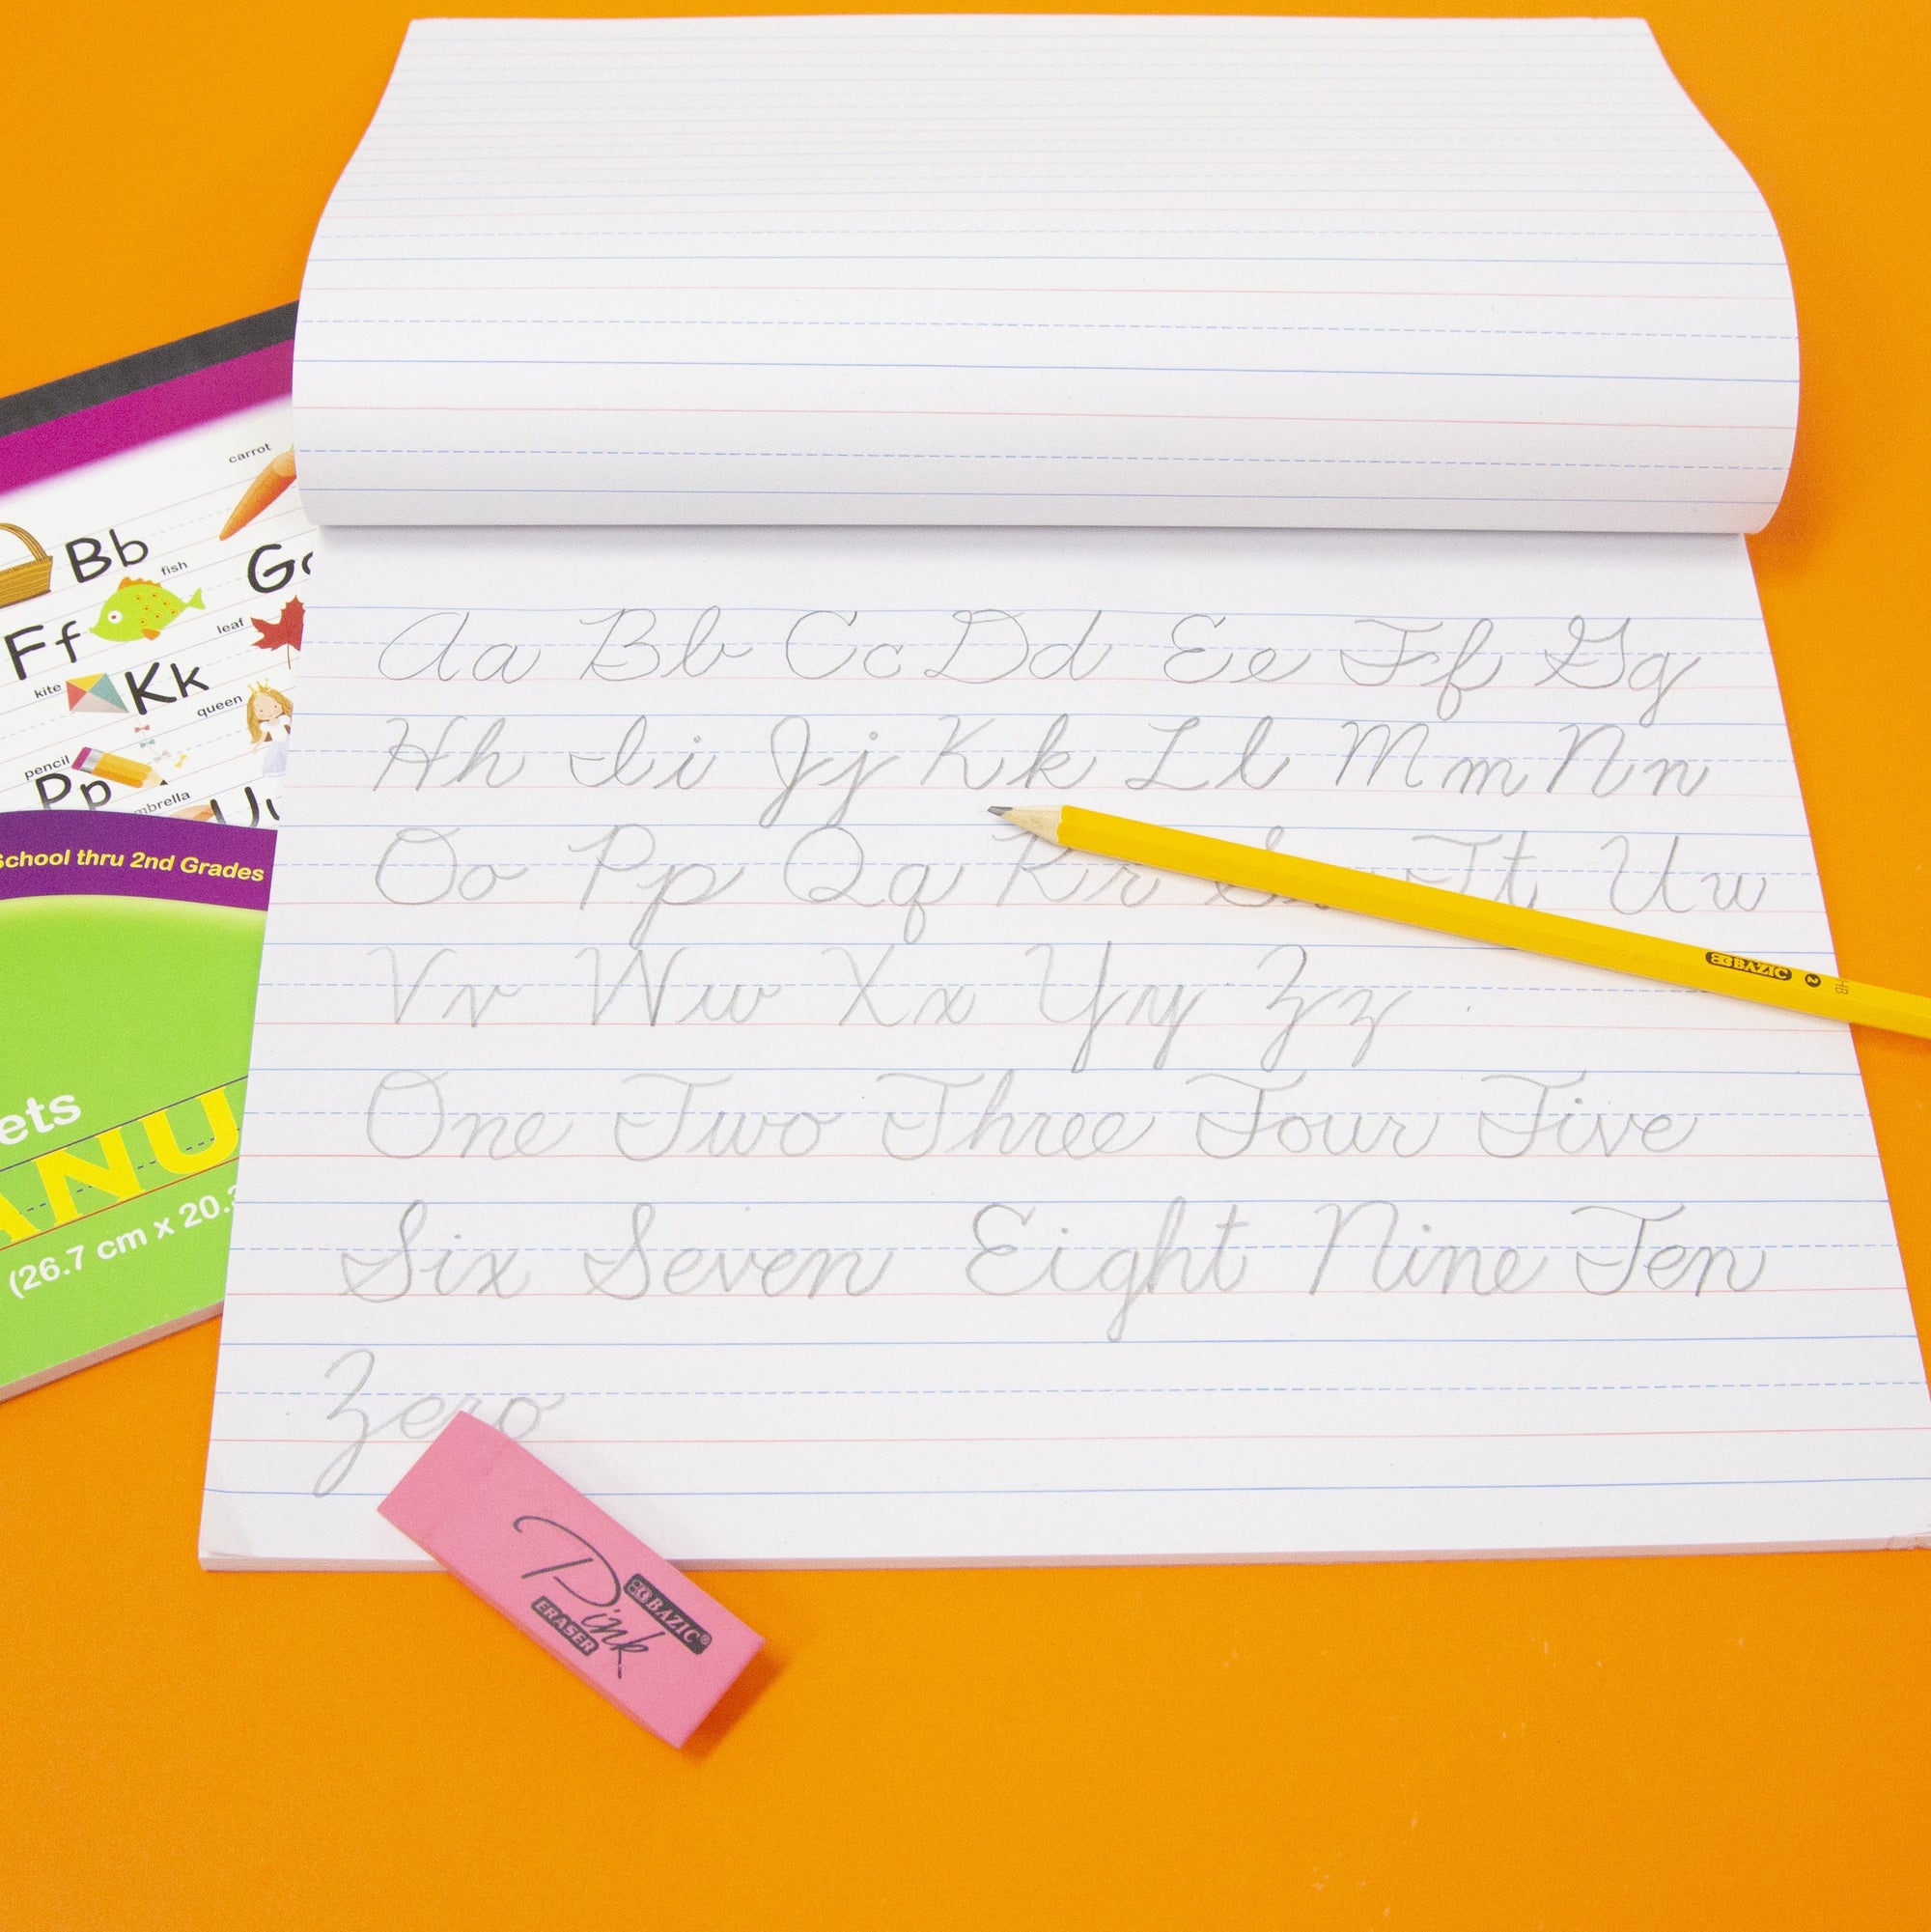 Aa Bb Cc Dd Ee Ff Gg
Hh Ii Jj Kk Ll Mm Nn
Oo Pp Qq Rr Ss Tt Uu
Vv Ww Xx Yy Zz
One Two Three Four Five
Six Seven Eight Nine Ten
Zero
BAZIC 2 HB
Pink
BAZIC®
ERASER
carrot
Bb
fish
Ff
leaf
kite
Kk
queen
pencil
Pp
School thru 2nd Grades
(26.7 cm x 20.3